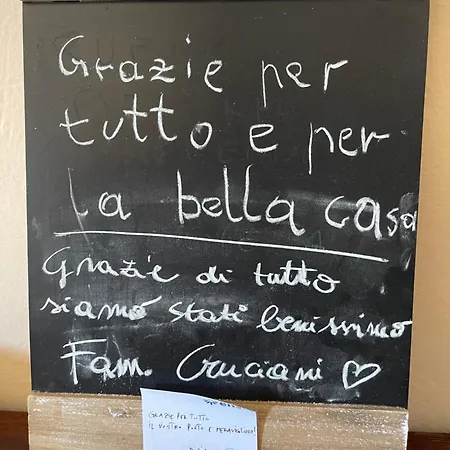 Grazie per
tutto e per
la bella casa
Grazie di tutto
siamo stati benissimo
Fam. Cruciani
GRAZIE PER TUTTO
IL VOSTRO POSTO È MERAVIGLIOSO!